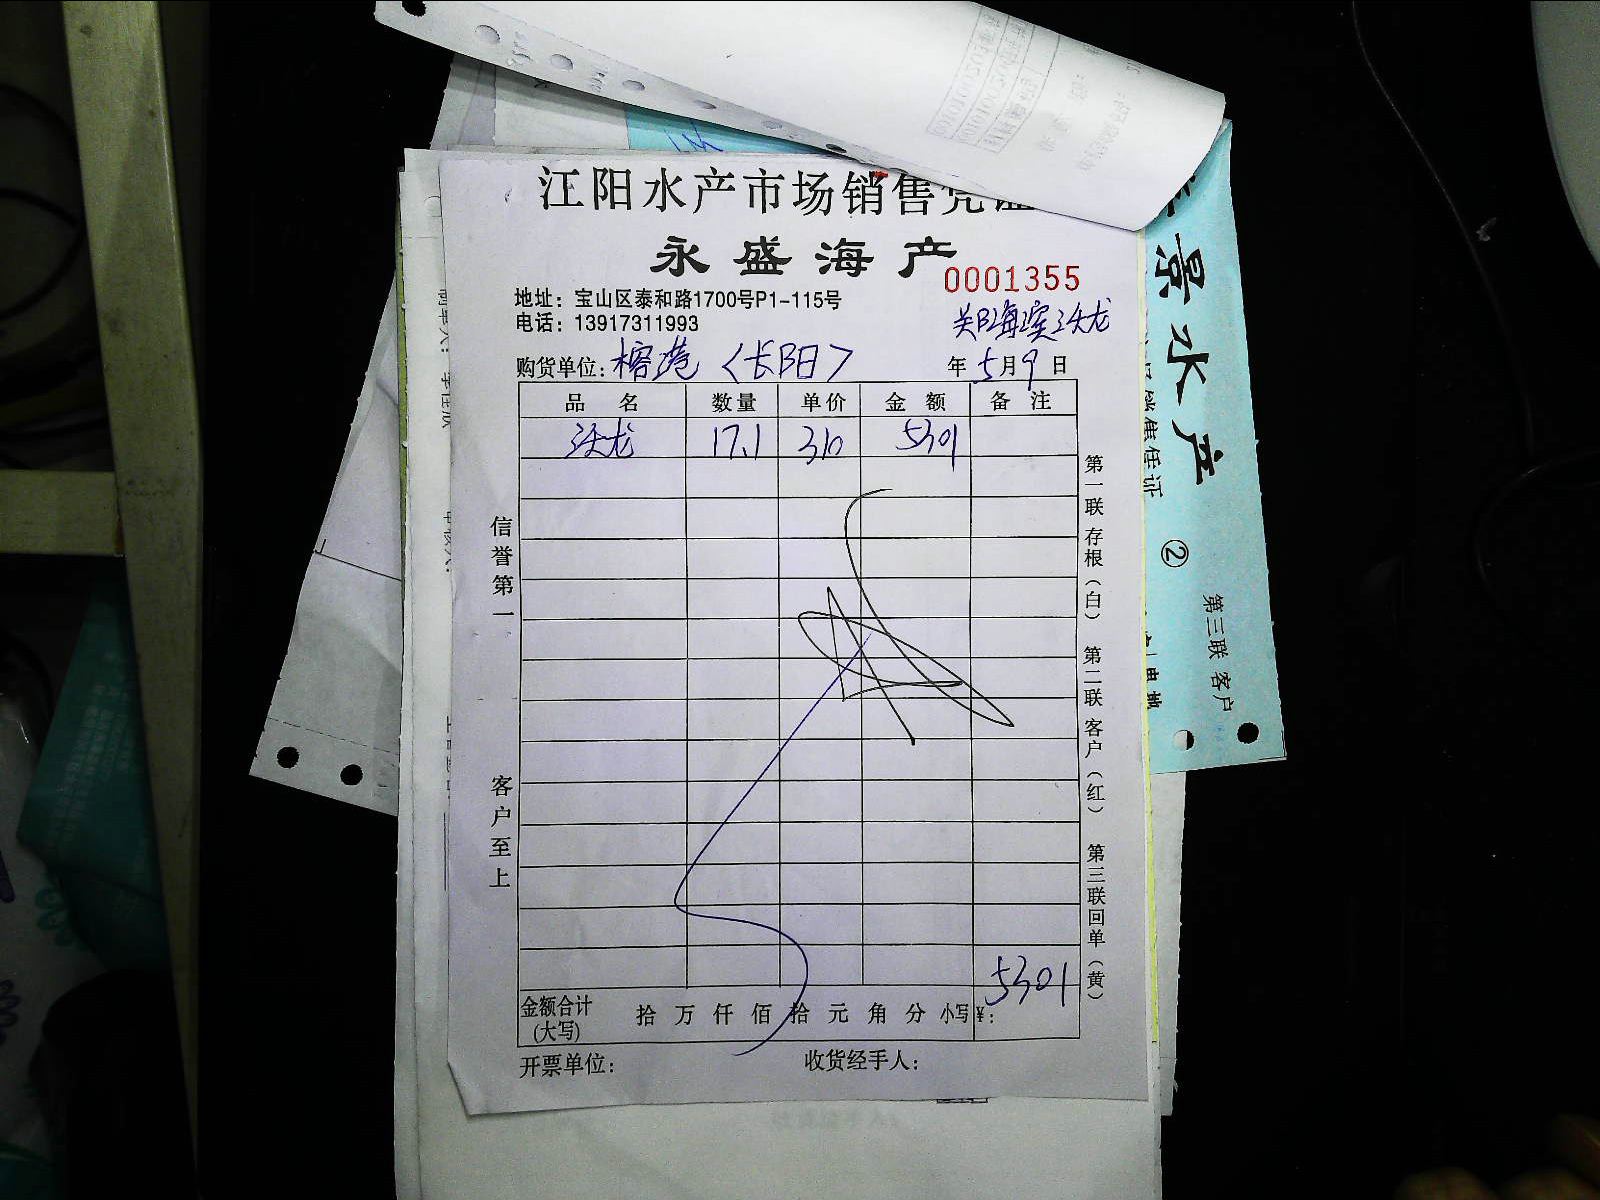 江阳水产市场销售凭证
永盛海产
0001355
地址：宝山区泰和路1700号P1-115号
电话：13917311993
购货单位：榕港〈长阳〉 年5月9日
品 名 数量 单价 金 额 备 注
沃龙 17.1 310 5301
5301
金额合计(大写) 拾 万 仟 佰 拾 元 角 分 小写¥：
开票单位： 收货经手人：
信誉第一
客户至上
第一联 存根（白） 第二联 客户（红） 第三联 回单（黄）
景水产
②
第三联 客户